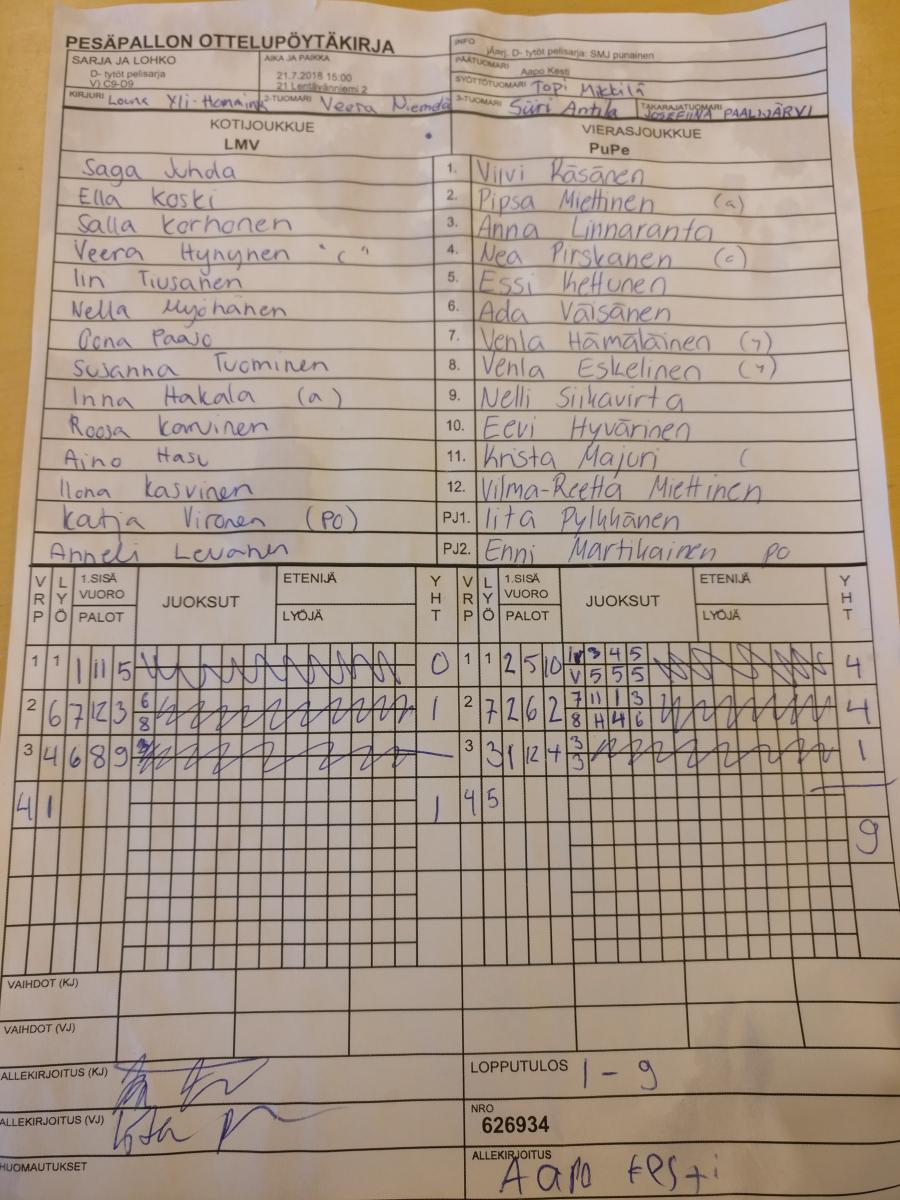 PESÄPALLON OTTELUPÖYTÄKIRJA
INFO
jÄarj. D- tytöt pelisarja: SMJ punainen
SARJA JA LOHKO
D- tytöt pelisarja
V) C9-D9
AIKA JA PAIKKA
21.7.2018 15:00
21 Lentävänniemi 2
PÄÄTUOMARI Aapo Kesti
SYÖTTÖTUOMARI Topi Mikkilä
KIRJURI Louna Yli-Hannink
2-TUOMARI Veera Niemelä
3-TUOMARI Siiri Antila
TAKARAJATUOMARI JOSEFIINA PAALIJÄRVI
KOTIJOUKKUE VIERASJOUKKUE
LMV PuPe
Saga Juhda 1. Viivi Räsänen
Ella Koski 2. Pipsa Miettinen (a)
Salla Korhonen 3. Anna Linnaranta
Veera Hynynen "c" 4. Nea Pirskanen (c)
Iin Tiusanen 5. Essi Kettunen
Nella Myöhänen 6. Ada Väisänen
Oona Paajo 7. Venla Hämäläinen (y)
Susanna Tuominen 8. Venla Eskelinen (y)
Inna Hakala (a) 9. Nelli Siikavirta
Roosa Karvinen 10. Eevi Hyvärinen
Aino Hasu 11. Krista Majuri (
Ilona Kasvinen 12. Vilma-Reetta Miettinen
Katja Vironen (PO) PJ1. Iita Pylkhänen
Anneli Levanen PJ2. Enni Martikainen PO
VRP LYÖ 1.SISÄ VUORO PALOT JUOKSUT ETENIJÄ LYÖJÄ YHT VRP LYÖ 1.SISÄ VUORO PALOT JUOKSUT ETENIJÄ LYÖJÄ YHT
1 1 1 11 5 0 1 1 2 5 10 3 4 5 4
V 5 5 5
2 6 7 12 3 6 1 2 7 2 6 2 7 11 1 3 4
8 8 H 4 6
3 4 6 8 9 3 3 1 12 4 3 1
3
4 1 1 4 5
9
VAIHDOT (KJ)
VAIHDOT (VJ)
ALLEKIRJOITUS (KJ)
LOPPUTULOS 1 - 9
ALLEKIRJOITUS (VJ)
NRO
626934
HUOMAUTUKSET
ALLEKIRJOITUS
Aapo Kesti